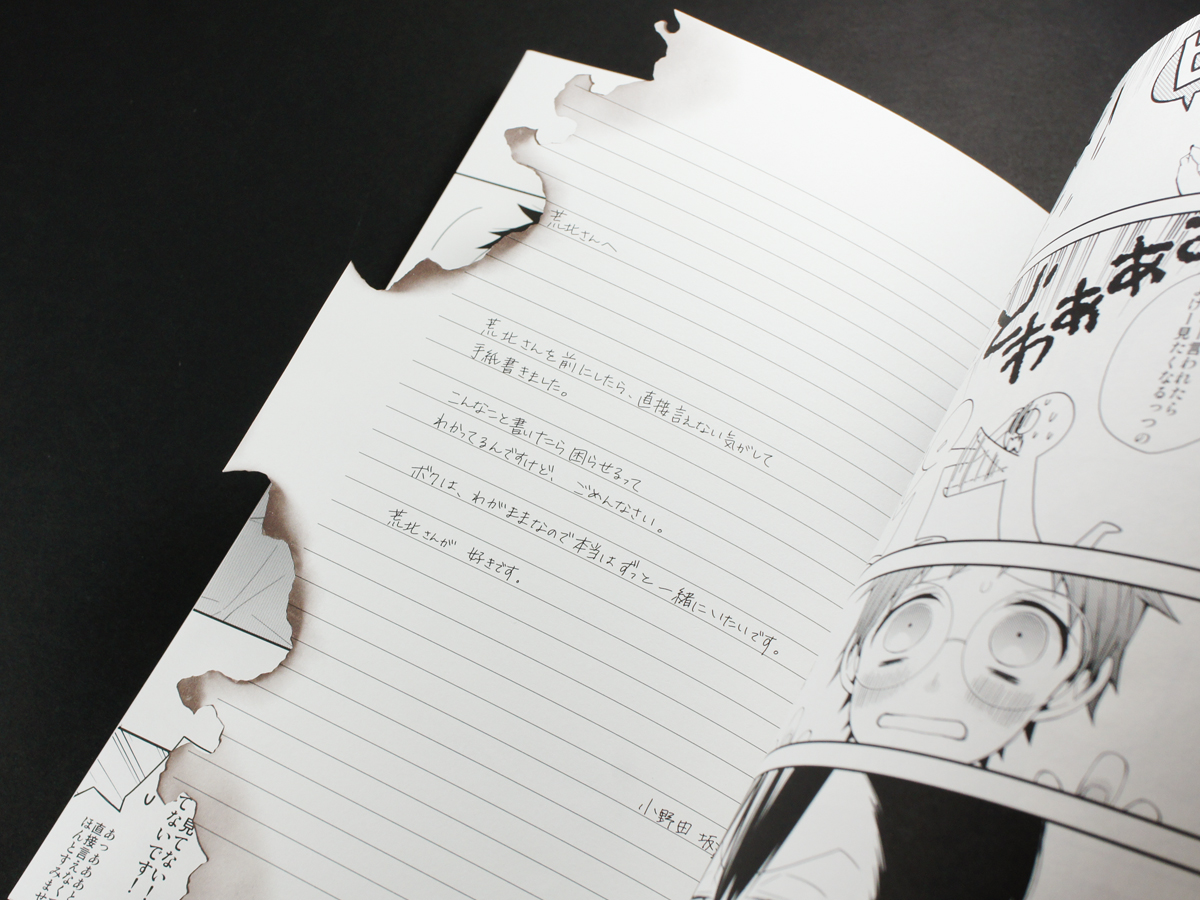 荒北さんへ
荒北さんを前にしたら、直接言えない気がして
手紙書きました。
こんなこと書いたら困らせるって
わかってるんですけど、ごめんなさい。
ボクは、わがままなので本当はずっと一緒にいたいです。
荒北さんが 好きです。
小野田 坂
言われたら
見たくなるっつの
見てない!
てないです!
あっあああと
直接言えなく
ほんとすみませ